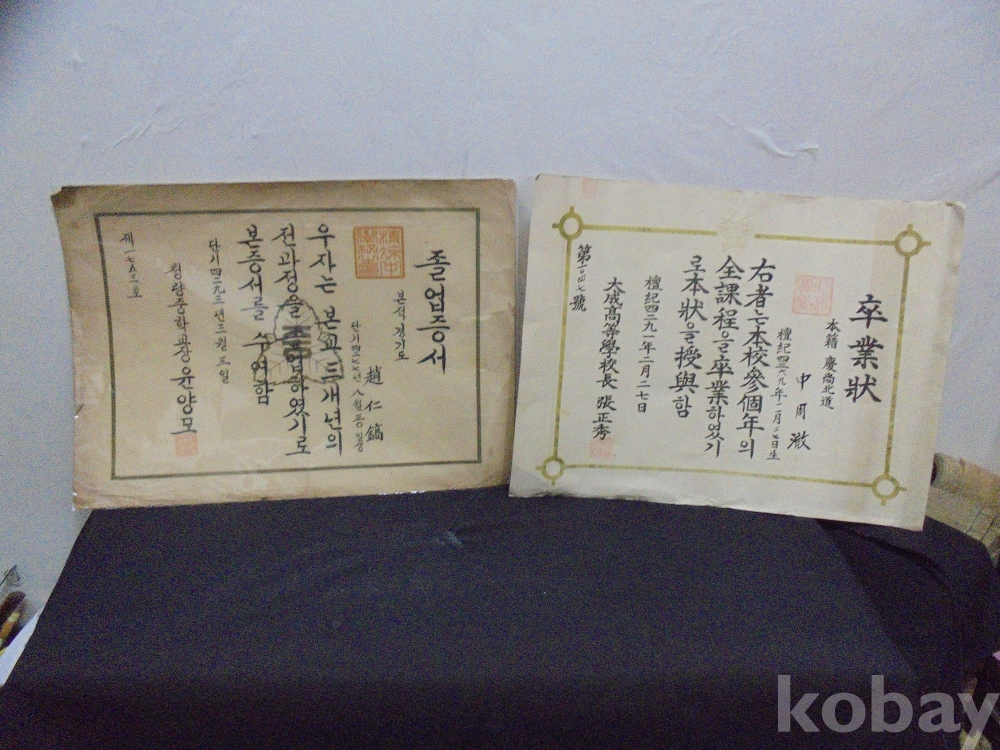 졸업증서
본적 경기도
趙仁鎬
우자는 본교 三개년의
전과정을 졸업하였기로
본증서를 수여함
단기四二九三년三월三일
청량중학교장 윤양모
제一七五三호
卒業狀
本籍 慶尙北道
申周澈
右者는本校參個年의
全課程을卒業하였기
로本狀을授與함
檀紀四二九一年二月二七日
大成高等學校長 張正秀
kobay